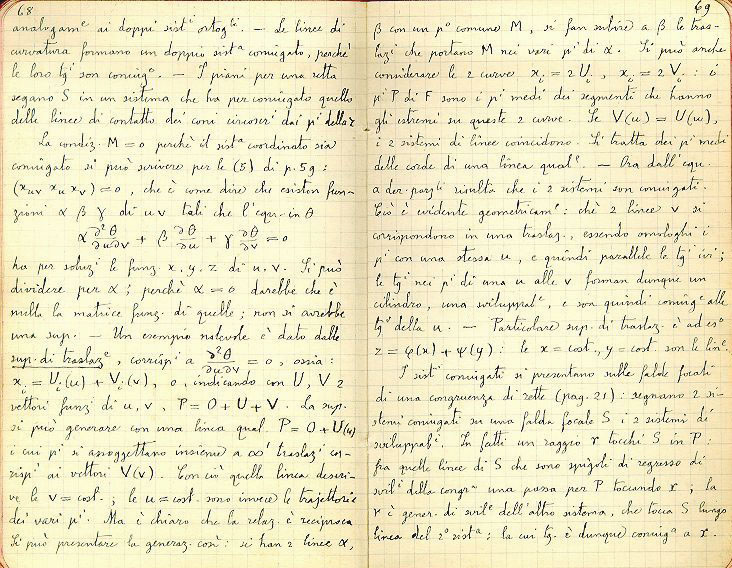 68
analogam^e ai doppi sist^i ortog^li. — Le linee di
curvatura formano un doppio sist^a coniugato, perchè
le loro tg^i son coniug^e. — I piani per una retta
segano S in un sistema che ha per coniugato quello
delle linee di contatto dei coni circoscr^i dai p^i della r
La condiz. M = 0 perchè il sist^a coordinato sia
coniugato si può scrivere per le (5) di p. 59:
(x_uv x_u x_v) = 0, che è come dire che esiston fun-
zioni α β γ di u v tali che l'equ. in θ
α ∂²θ/∂u∂v + β ∂θ/∂u + γ ∂θ/∂v = 0
ha per soluz^i le funz. x, y, z di u, v. Si può
dividere per α; perchè α = 0 darebbe che è
nulla la matrice funz. di quelle; non si avrebbe
una sup. — Un esempio notevole è dato dalle
sup. di traslaz^e, corrisp^i a ∂²θ/∂u∂v = 0, ossia:
x_i = U_i(u) + V_i(v), o, indicando con U, V 2
vettori funz^i di u, v, P = O + U + V. La sup.
si può generare con una linea qual. P = O + U(u)
i cui p^i si assoggettano insieme a ∞¹ traslaz^i cor-
risp^i ai vettori V(v). Con ciò quella linea descri-
ve le v = cost.; le u = cost. sono invece le trajettorie
dei vari p^i. Ma è chiaro che la relaz. è reciproca
Si può presentare la generaz. così: si han 2 linee α,
69
β con un p^o comune M, si fan subire a β le tras-
laz^i che portano M nei vari p^i di α. Si può anche
considerare le 2 curve x_i = 2U_i, x_i = 2V_i: i
p^i P di F sono i p^i medi dei segmenti che hanno
gli estremi su queste 2 curve. Se V(u) = U(u),
i 2 sistemi di linee coincidono. Si tratta dei p^i medi
delle corde di una linea qual^e. — Ora dall'equ.
a der. parz^li risulta che i 2 sistemi son coniugati.
Ciò è evidente geometricam^e: chè 2 linee v si
corrispondono in una traslaz., essendo omologhi i
p^i con una stessa u, e quindi parallele le tg^i ivi;
le tg^i nei p^i di una u alle v forman dunque un
cilindro, una sviluppab^e, e son quindi coniug^e alle
tg^i della u. — Particolare sup. di traslaz. è ad es^o
z = φ(x) + ψ(y): le x = cost., y = cost. son le lin^e.
I sist^i coniugati si presentano sulle falde focali
di una congruenza di rette (pag. 21): segnano 2 si-
stemi coniugati su una falda focale S i 2 sistemi di
sviluppab^i. In fatti un raggio r tocchi S in P:
fra quelle linee di S che sono spigoli di regresso di
svil^i della congr^a una passa per P toccando r; la
r è gener. di svil^e dell'altro sistema, che tocca S lungo
linea del 2° sist^a: la cui tg. è dunque coniug^a a r.